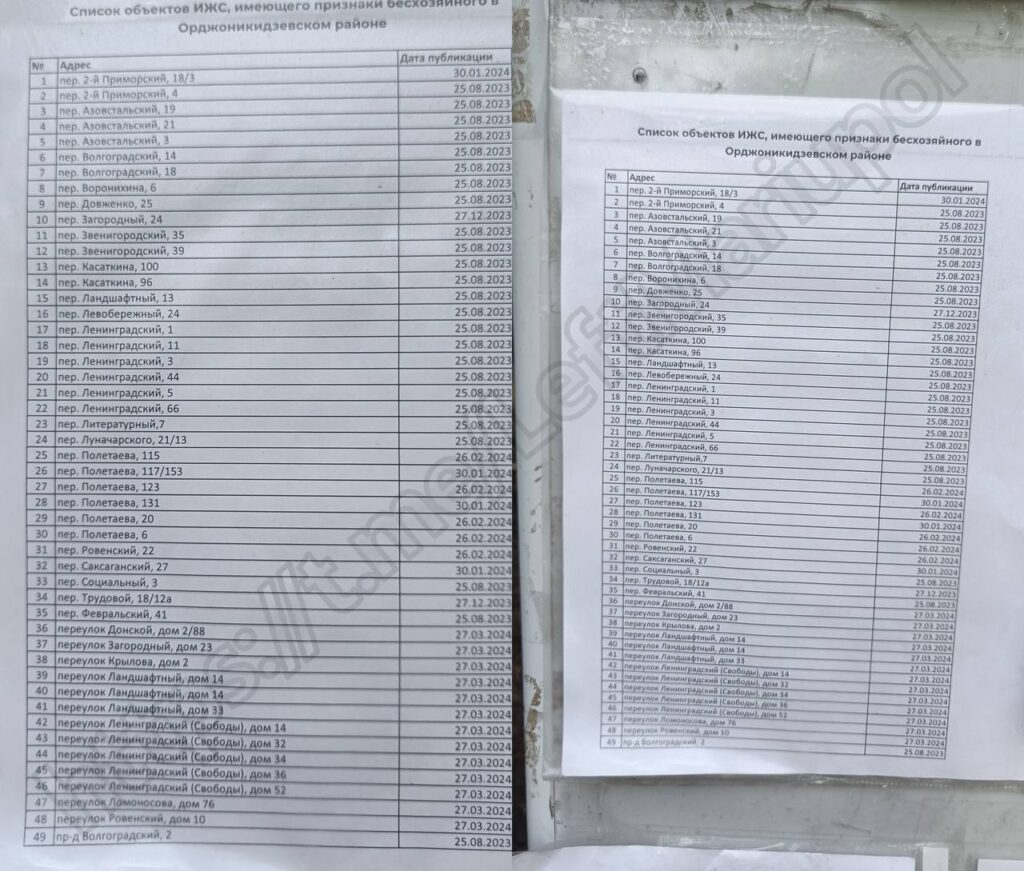 Список объектов ИЖС, имеющего признаки бесхозяйного в
Орджоникидзевском районе
№ Адрес Дата публикации
1 пер. 2-й Приморский, 18/3 30.01.2024
2 пер. 2-й Приморский, 4 25.08.2023
3 пер. Азовстальский, 19 25.08.2023
4 пер. Азовстальский, 21 25.08.2023
5 пер. Азовстальский, 3 25.08.2023
6 пер. Волгоградский, 14 25.08.2023
7 пер. Волгоградский, 18 25.08.2023
8 пер. Воронихина, 6 25.08.2023
9 пер. Довженко, 25 25.08.2023
10 пер. Загородный, 24 27.12.2023
11 пер. Звенигородский, 35 25.08.2023
12 пер. Звенигородский, 39 25.08.2023
13 пер. Касаткина, 100 25.08.2023
14 пер. Касаткина, 96 25.08.2023
15 пер. Ландшафтный, 13 25.08.2023
16 пер. Левобережный, 24 25.08.2023
17 пер. Ленинградский, 1 25.08.2023
18 пер. Ленинградский, 11 25.08.2023
19 пер. Ленинградский, 3 25.08.2023
20 пер. Ленинградский, 44 25.08.2023
21 пер. Ленинградский, 5 25.08.2023
22 пер. Ленинградский, 66 25.08.2023
23 пер. Литературный,7 25.08.2023
24 пер. Луначарского, 21/13 25.08.2023
25 пер. Полетаева, 115 26.02.2024
26 пер. Полетаева, 117/153 30.01.2024
27 пер. Полетаева, 123 26.02.2024
28 пер. Полетаева, 131 30.01.2024
29 пер. Полетаева, 20 26.02.2024
30 пер. Полетаева, 6 26.02.2024
31 пер. Ровенский, 22 26.02.2024
32 пер. Саксаганский, 27 30.01.2024
33 пер. Социальный, 3 25.08.2023
34 пер. Трудовой, 18/12а 27.12.2023
35 пер. Февральский, 41 25.08.2023
36 переулок Донской, дом 2/88 27.03.2024
37 переулок Загородный, дом 23 27.03.2024
38 переулок Крылова, дом 2 27.03.2024
39 переулок Ландшафтный, дом 14 27.03.2024
40 переулок Ландшафтный, дом 14 27.03.2024
41 переулок Ландшафтный, дом 33 27.03.2024
42 переулок Ленинградский (Свободы), дом 14 27.03.2024
43 переулок Ленинградский (Свободы), дом 32 27.03.2024
44 переулок Ленинградский (Свободы), дом 34 27.03.2024
45 переулок Ленинградский (Свободы), дом 36 27.03.2024
46 переулок Ленинградский (Свободы), дом 52 27.03.2024
47 переулок Ломоносова, дом 76 27.03.2024
48 переулок Ровенский, дом 10 27.03.2024
49 пр-д Волгоградский, 2 25.08.2023
Список объектов ИЖС, имеющего признаки бесхозяйного в
Орджоникидзевском районе
№ Адрес Дата публикации
1 пер. 2-й Приморский, 18/3 30.01.2024
2 пер. 2-й Приморский, 4 25.08.2023
3 пер. Азовстальский, 19 25.08.2023
4 пер. Азовстальский, 21 25.08.2023
5 пер. Азовстальский, 3 25.08.2023
6 пер. Волгоградский, 14 25.08.2023
7 пер. Волгоградский, 18 25.08.2023
8 пер. Воронихина, 6 25.08.2023
9 пер. Довженко, 25 25.08.2023
10 пер. Загородный, 24 27.12.2023
11 пер. Звенигородский, 35 25.08.2023
12 пер. Звенигородский, 39 25.08.2023
13 пер. Касаткина, 100 25.08.2023
14 пер. Касаткина, 96 25.08.2023
15 пер. Ландшафтный, 13 25.08.2023
16 пер. Левобережный, 24 25.08.2023
17 пер. Ленинградский, 1 25.08.2023
18 пер. Ленинградский, 11 25.08.2023
19 пер. Ленинградский, 3 25.08.2023
20 пер. Ленинградский, 44 25.08.2023
21 пер. Ленинградский, 5 25.08.2023
22 пер. Ленинградский, 66 25.08.2023
23 пер. Литературный,7 25.08.2023
24 пер. Луначарского, 21/13 25.08.2023
25 пер. Полетаева, 115 26.02.2024
26 пер. Полетаева, 117/153 30.01.2024
27 пер. Полетаева, 123 26.02.2024
28 пер. Полетаева, 131 30.01.2024
29 пер. Полетаева, 20 26.02.2024
30 пер. Полетаева, 6 26.02.2024
31 пер. Ровенский, 22 26.02.2024
32 пер. Саксаганский, 27 30.01.2024
33 пер. Социальный, 3 25.08.2023
34 пер. Трудовой, 18/12а 27.12.2023
35 пер. Февральский, 41 25.08.2023
36 переулок Донской, дом 2/88 27.03.2024
37 переулок Загородный, дом 23 27.03.2024
38 переулок Крылова, дом 2 27.03.2024
39 переулок Ландшафтный, дом 14 27.03.2024
40 переулок Ландшафтный, дом 14 27.03.2024
41 переулок Ландшафтный, дом 33 27.03.2024
42 переулок Ленинградский (Свободы), дом 14 27.03.2024
43 переулок Ленинградский (Свободы), дом 32 27.03.2024
44 переулок Ленинградский (Свободы), дом 34 27.03.2024
45 переулок Ленинградский (Свободы), дом 36 27.03.2024
46 переулок Ленинградский (Свободы), дом 52 27.03.2024
47 переулок Ломоносова, дом 76 27.03.2024
48 переулок Ровенский, дом 10 27.03.2024
49 пр-д Волгоградский, 2 25.08.2023
https://t.me/Leftmariupol